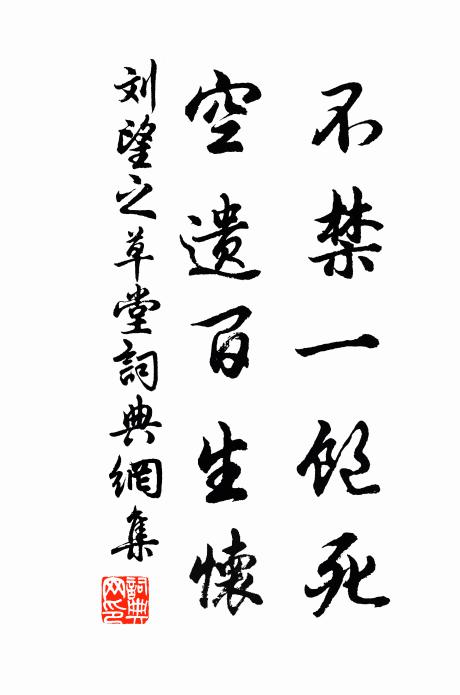 不禁一飽死
空遺百生懷
刘望之草堂詞典網集
詞典网印